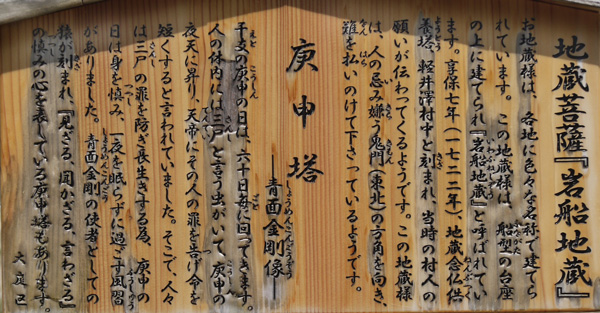 地蔵菩薩『岩船地蔵』
お地蔵様は、各地に色々な名称で建てら
れています。この地蔵様は、船型の台座
の上に建てられ『岩船地蔵』と呼ばれてい
ます。享保七年(一七二二年)、地蔵念仏供
養塔、軽井澤村中と刻まれ、当時の村人の
願いが伝わってくるようです。この地蔵様
は、人の忌み嫌う鬼門(東北)の方角を向き、
難を払いのけて下さっているようです。
庚申塔
―青面金剛像―
干支の庚申の日は、六十日毎に回ってきます。
人の体内には三尸と言う虫がいて、庚申の
夜天に昇り、天帝にその人の罪を告げ命を
短くすると言われていました。そこで、人々
は三尸の罪を防ぎ長生きする為、庚申の
日は身を慎み、一夜を眠らずに過ごす風習
がありました。青面金剛の使者としての
猿が刻まれ、『見ざる、聞かざる、言わざる』
の慎みの心を表している庚申塔もあります。